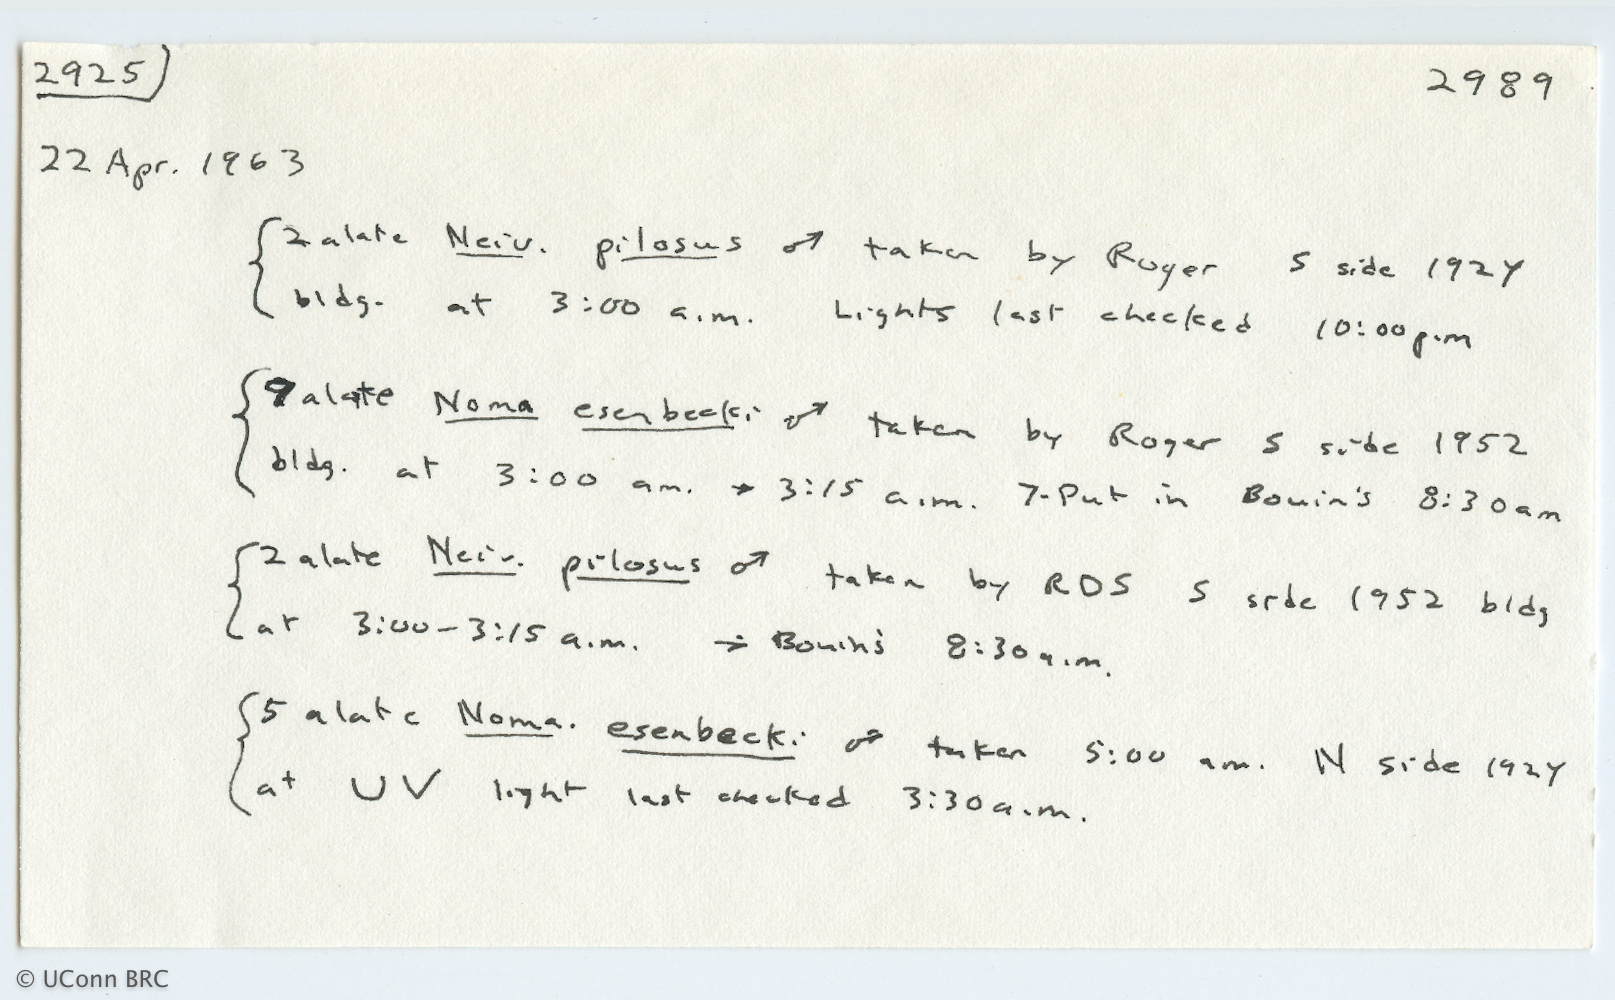 2925 2989
22 Apr. 1963
2 alate Neiv. pilosus ♂ taken by Roger S side 1924
bldg. at 3:00 a.m. Lights last checked 10:00 p.m
9 alate Noma esenbecki ♂ taken by Roger S side 1952
bldg. at 3:00 am. → 3:15 a.m. 7-Put in Bouin's 8:30 am
2 alate Neiv. pilosus ♂ taken by RDS S side 1952 bldg
at 3:00-3:15 a.m. → Bouin's 8:30 a.m.
5 alate Noma. esenbecki ♂ taken 5:00 am. N side 1924
at UV light last checked 3:30 a.m.
© UConn BRC